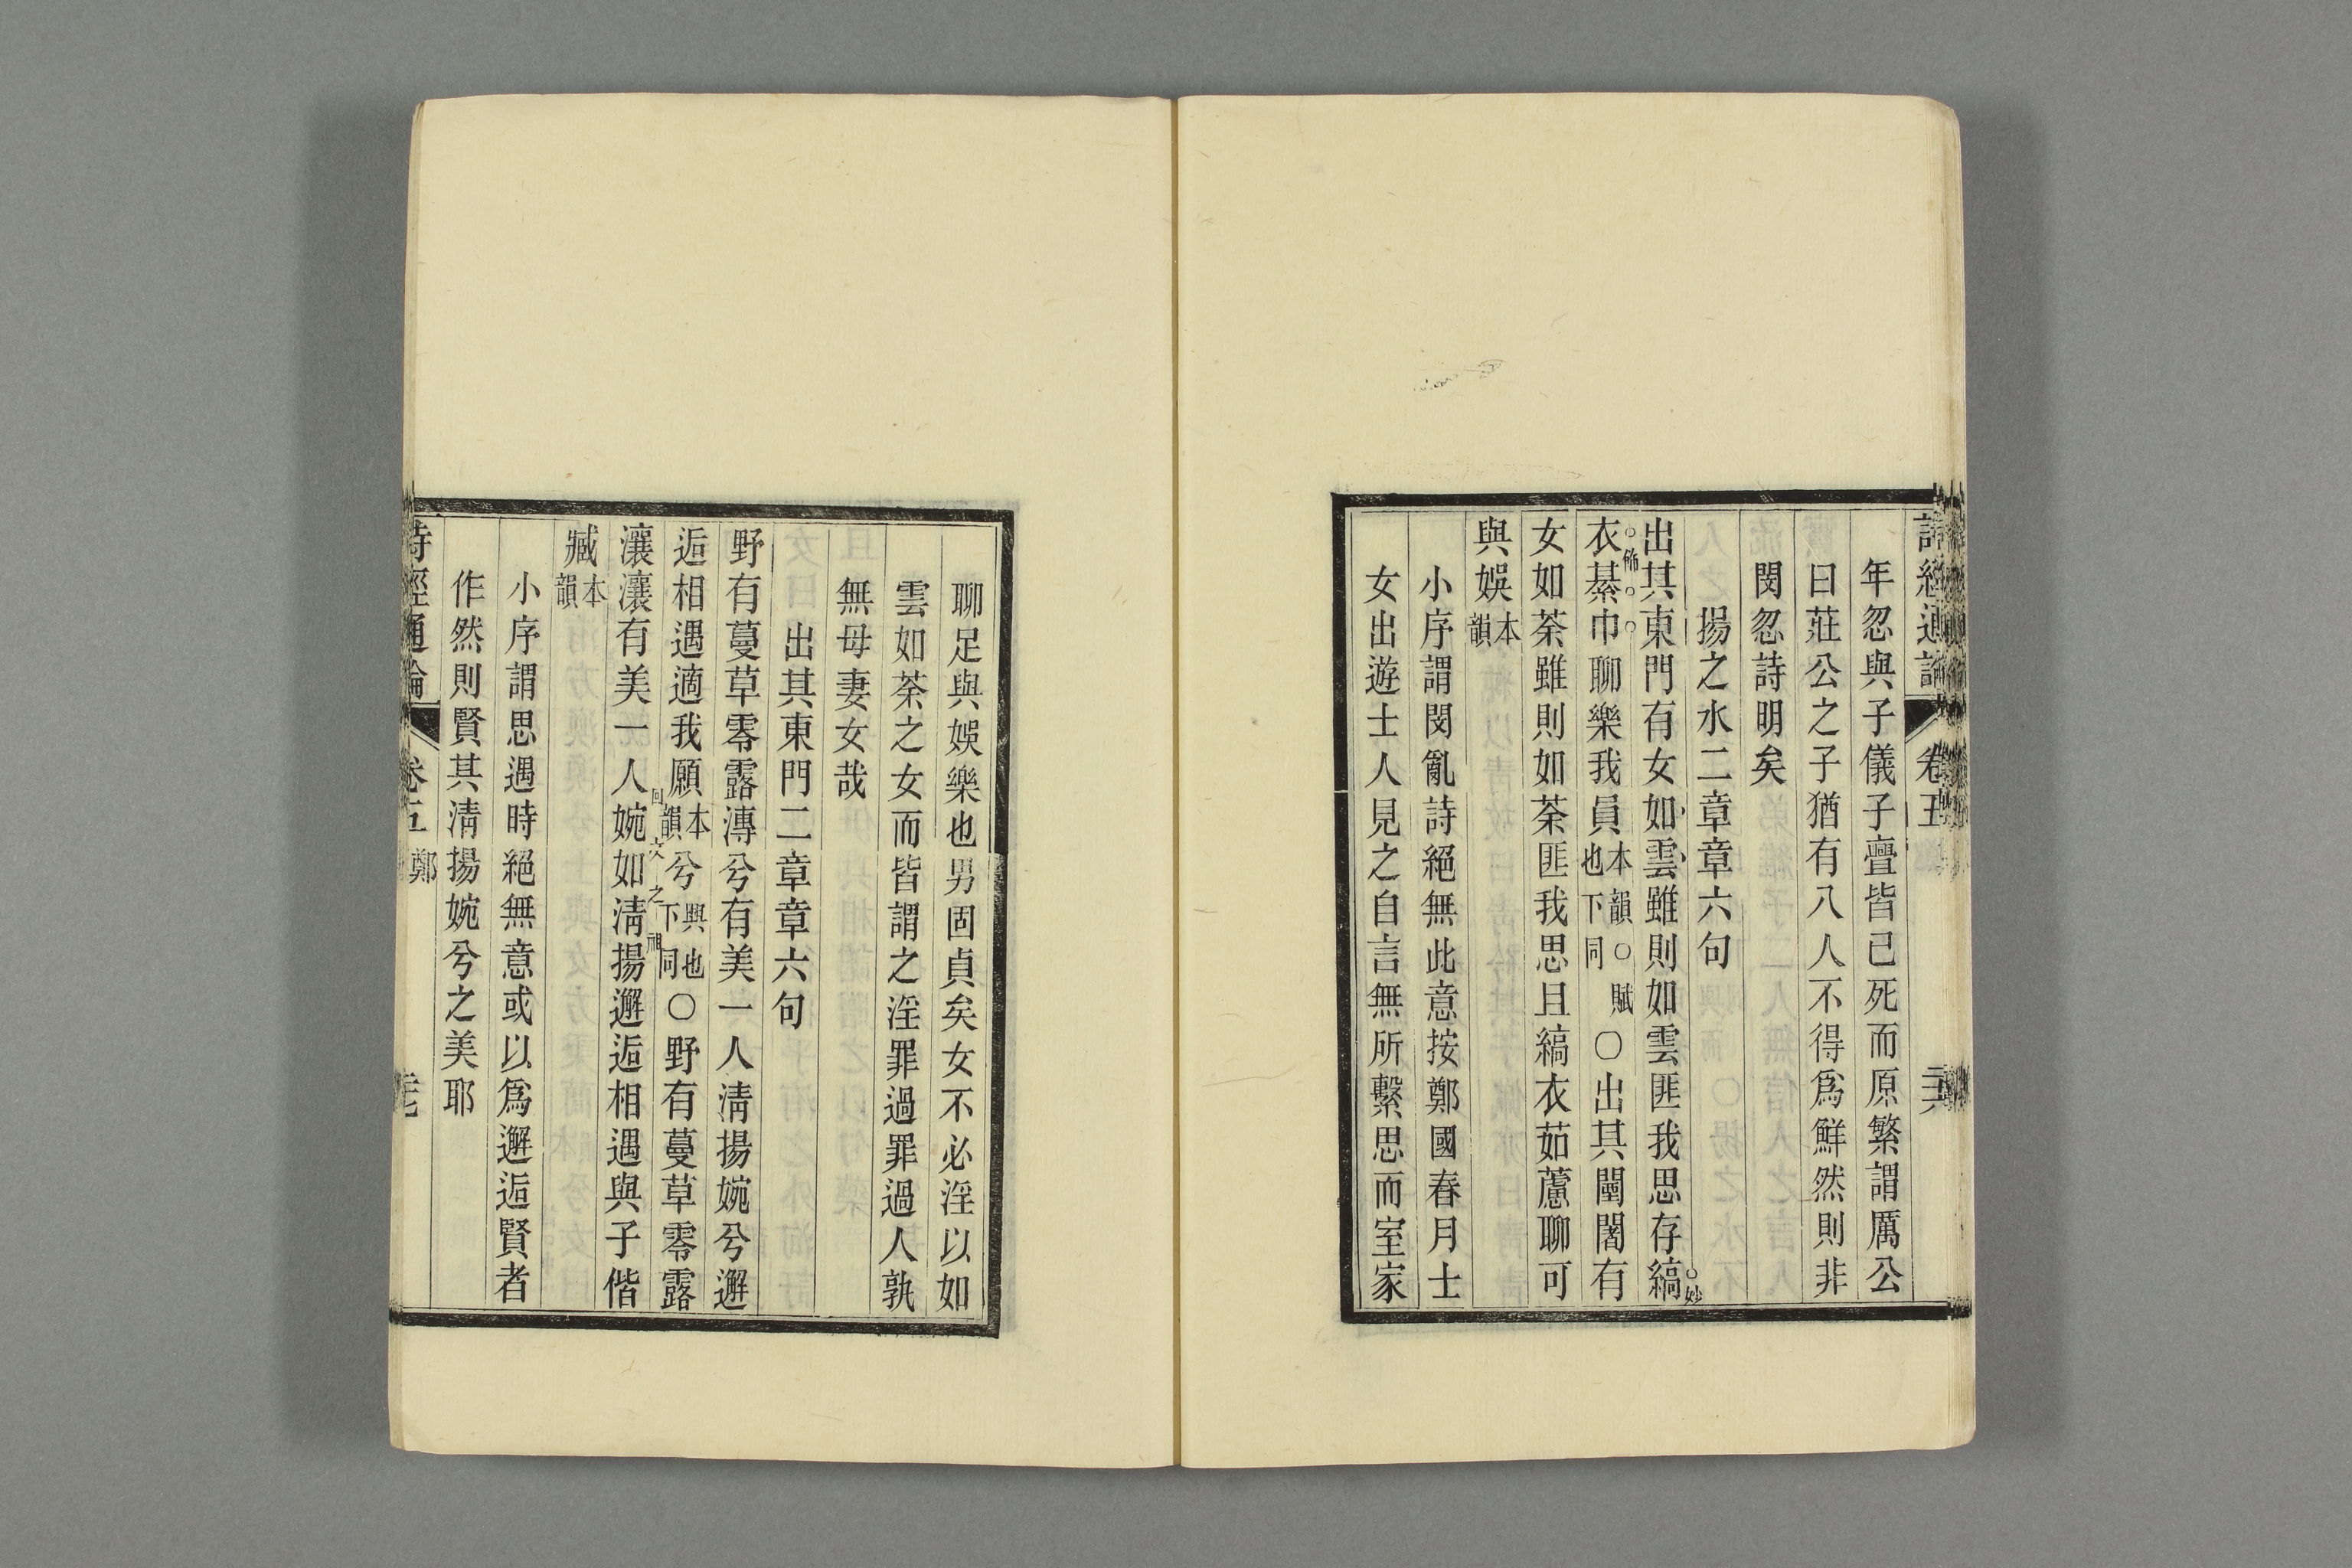 詩經通論 卷五 二六
年忽與子儀子亹皆已死而原繁謂厲公
曰莊公之子猶有八人不得爲鮮然則非
閔忽詩明矣
揚之水二章章六句
出其東門有女如雲雖則如雲匪我思存縞
妙
衣綦巾聊樂我員本韻○賦也下同○出其闉闍有
飾
女如荼雖則如荼匪我思且縞衣茹藘聊可
與娛本韻
小序謂閔亂詩絕無此意按鄭國春月士
女出遊士人見之自言無所繫思而室家
聊足與娛樂也男固貞矣女不必淫以如
雲如荼之女而皆謂之淫罪過罪過人孰
無母妻女哉
出其東門二章章六句
野有蔓草零露漙兮有美一人淸揚婉兮邂
逅相遇適我願本韻兮興也下同○野有蔓草零露
回文之祖
瀼瀼有美一人婉如淸揚邂逅相遇與子偕
臧本韻
小序謂思遇時絕無意或以爲邂逅賢者
作然則賢其淸揚婉兮之美耶
詩經通論 卷五 鄭 二七